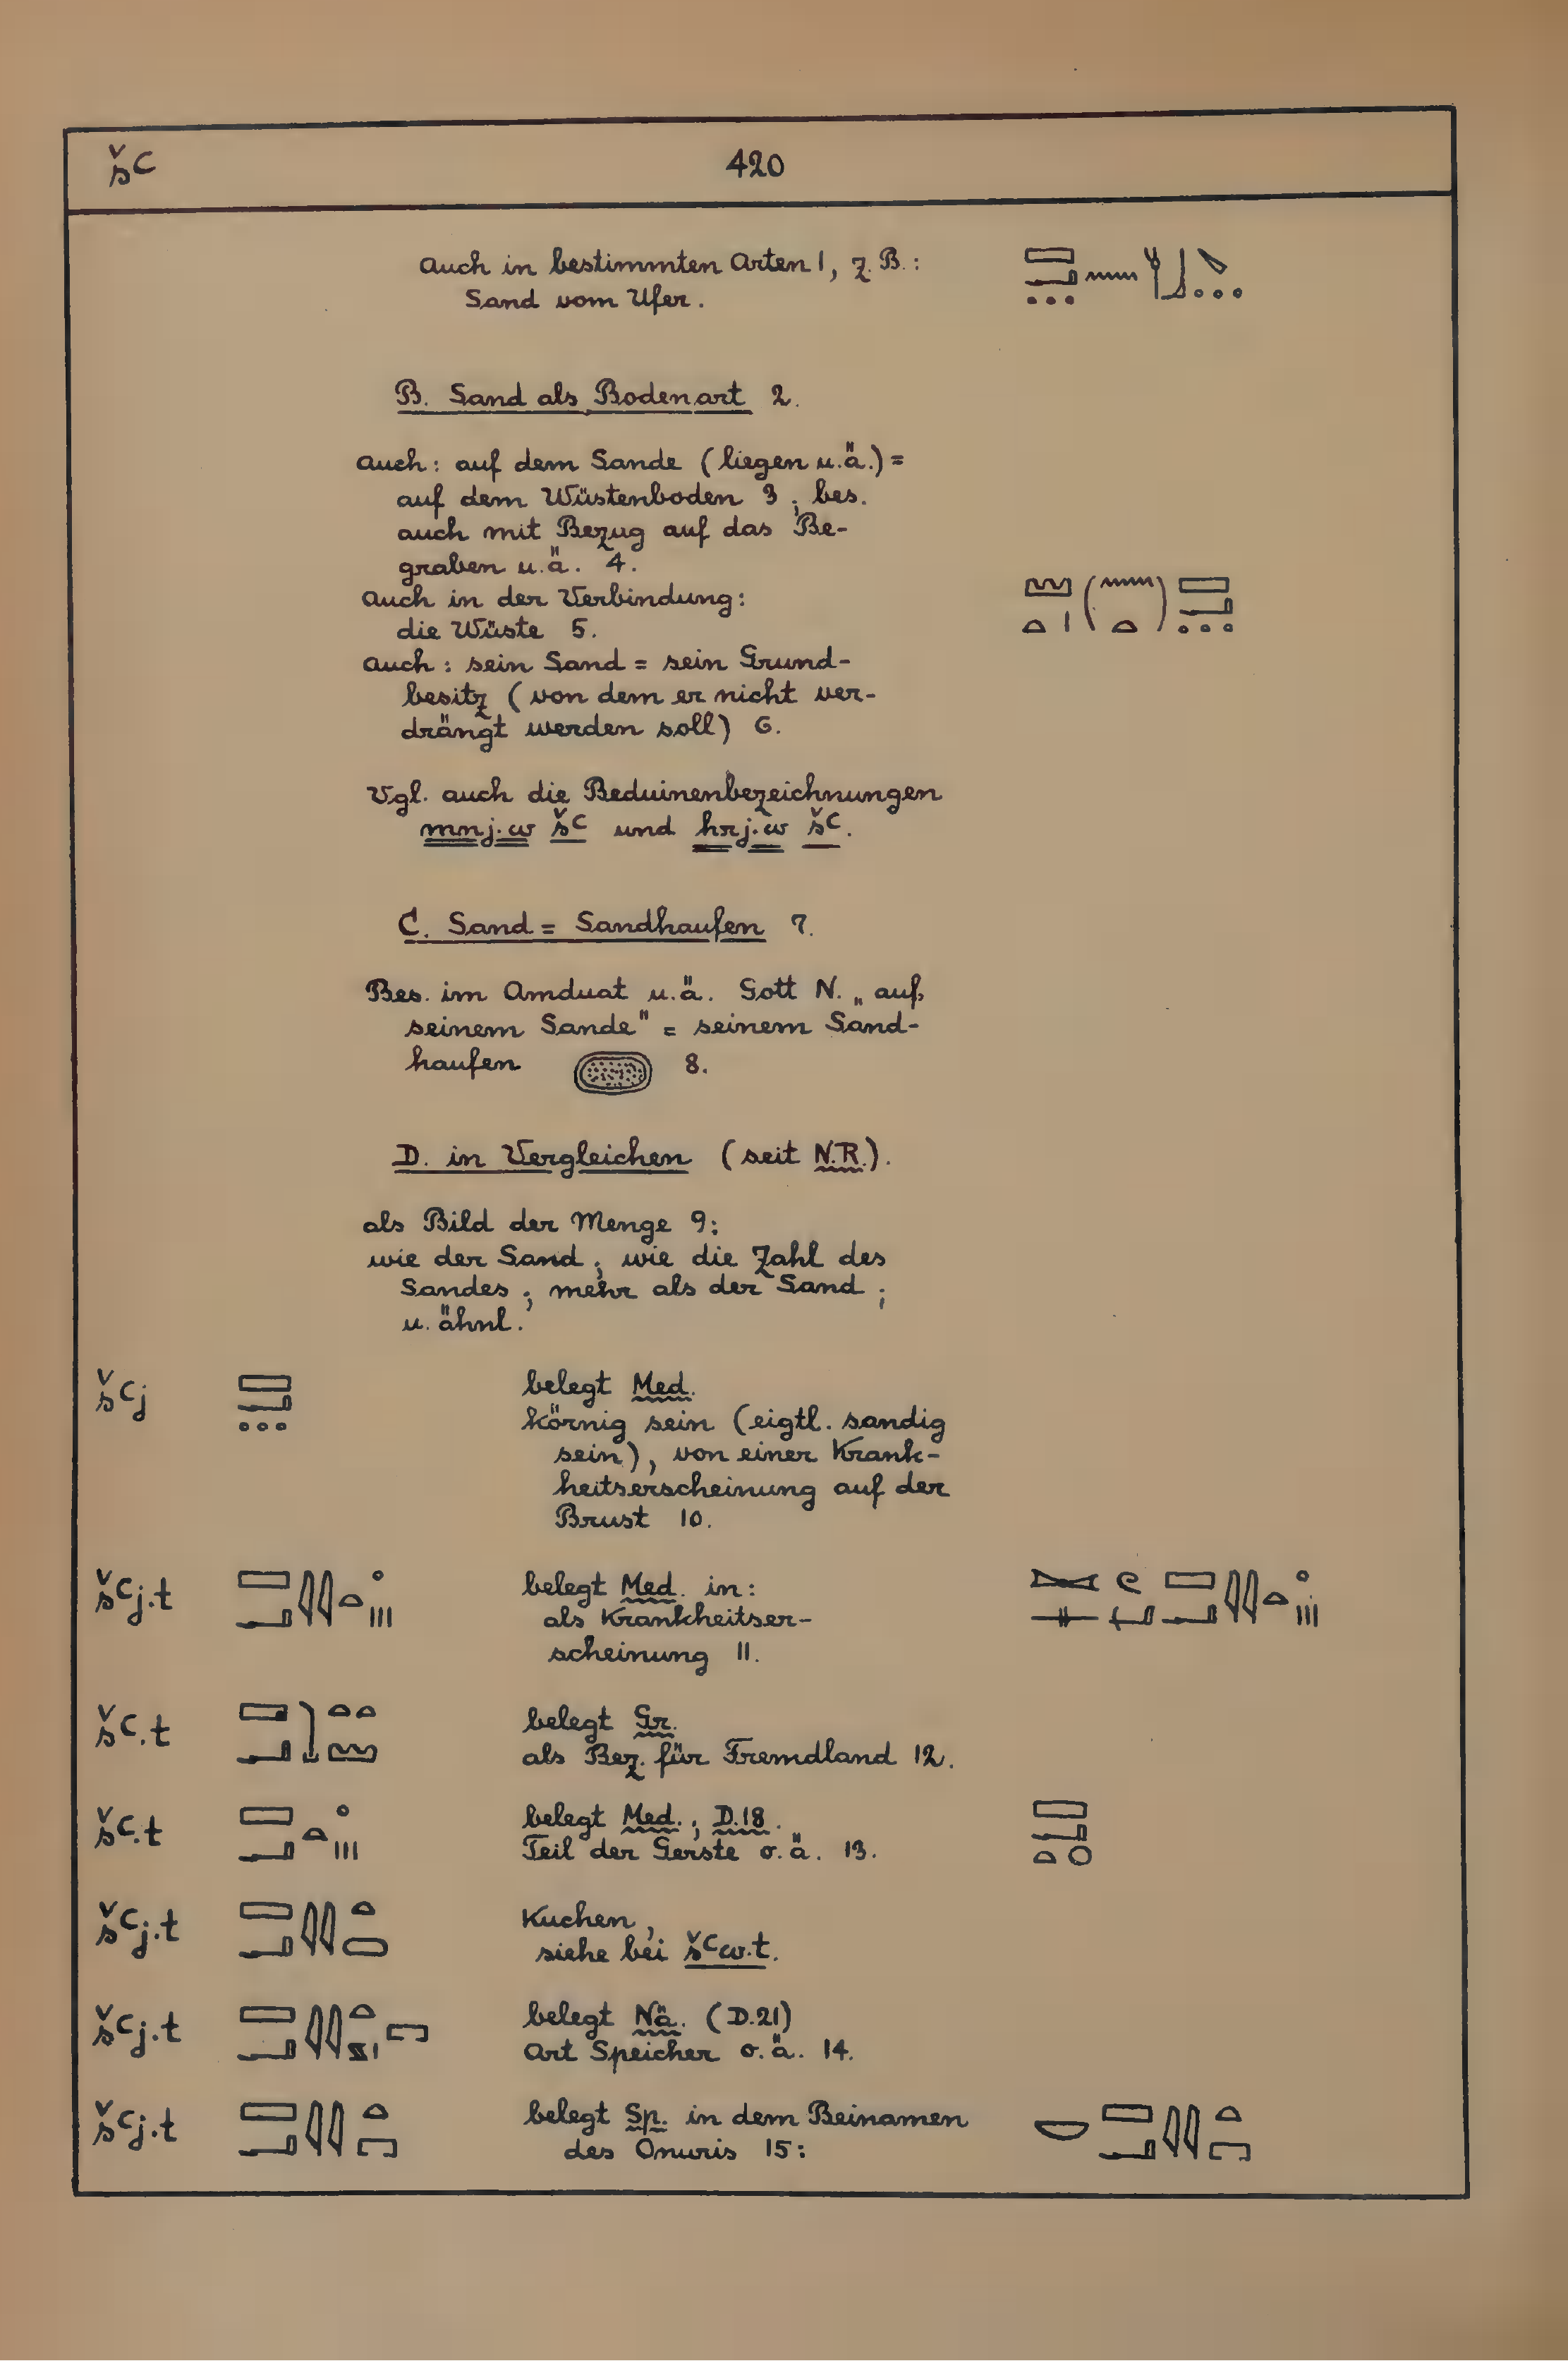 šꜥ 420
Auch in bestimmten Arten 1, z. B.:
Sand vom Ufer.
B. Sand als Bodenart 2.
Auch: auf dem Sande (liegen u.ä.) =
auf dem Wüstenboden 3; bes.
auch mit Bezug auf das Be-
graben u.ä. 4.
Auch in der Verbindung:
die Wüste 5.
Auch: sein Sand = sein Grund-
besitz (von dem er nicht ver-
drängt werden soll) 6.
Vgl. auch die Beduinenbezeichnungen
mnj.w šꜥ und hrj.w šꜥ.
C. Sand = Sandhaufen 7.
Bes. im Amduat u.ä. Gott N. „auf
seinem Sande" = seinem Sand-
haufen 8.
D. in Vergleichen (seit N.R.).
als Bild der Menge 9:
wie der Sand; wie die Zahl des
Sandes; mehr als der Sand;
u. ähnl.
šꜥj belegt Med.
körnig sein (eigtl. sandig
sein), von einer Krank-
heitserscheinung auf der
Brust 10.
šꜥj.t belegt Med. in:
als Krankheitser-
scheinung 11.
šꜥ.t belegt Gr.
als Bez. für Fremdland 12.
šꜥ.t belegt Med.; D.18.
Teil der Gerste o.ä. 13.
šꜥj.t Kuchen,
siehe bei šꜥw.t.
šꜥj.t belegt Nä. (D.21)
Art Speicher o.ä. 14.
šꜥj.t belegt Sp. in dem Beinamen
des Onuris 15: